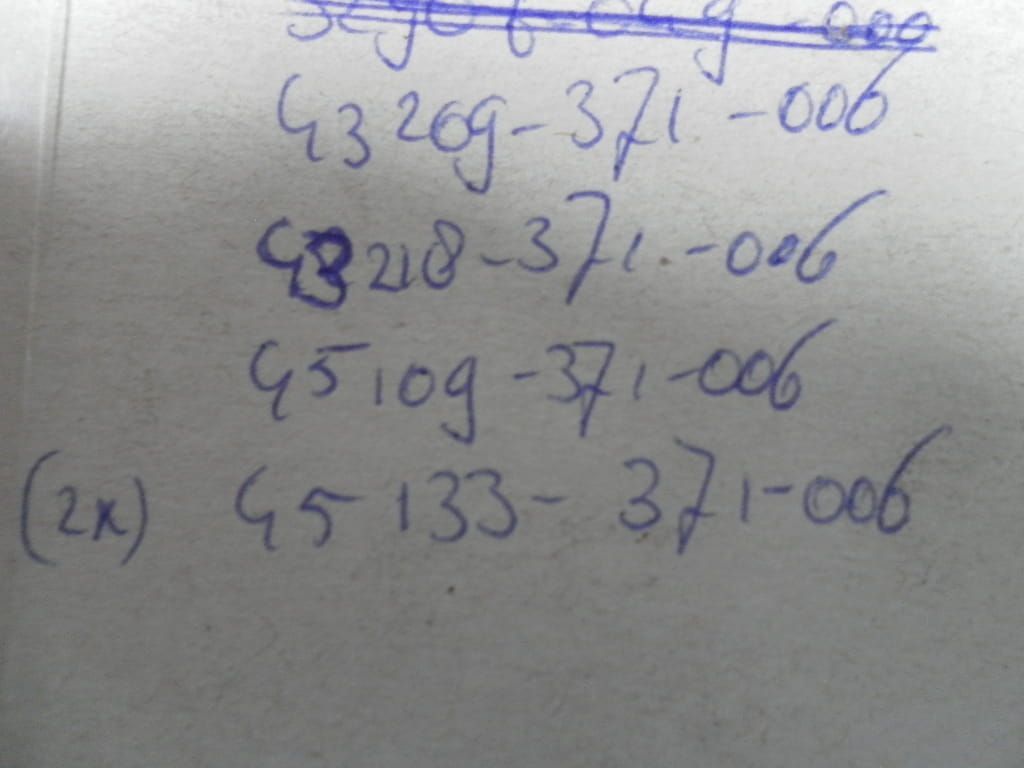 43209-371-006
43218-371-006
45109-371-006
(2x) 45133-371-006